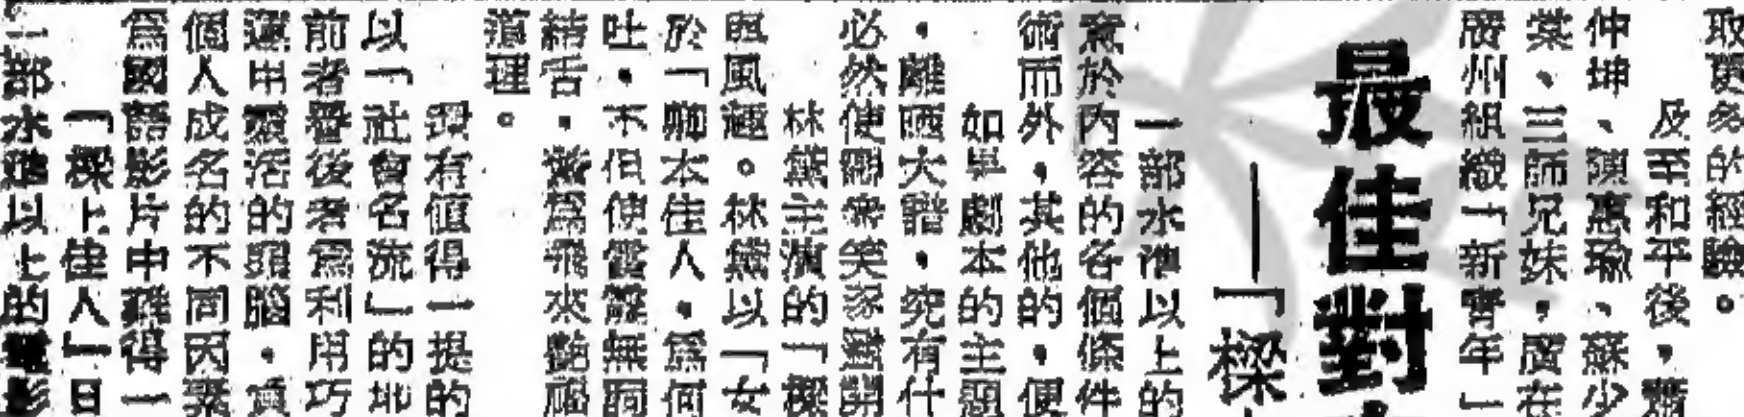 取更多的經驗。
及至和平後，
仲坤、顏惠瑜、蘇少
棠、三師兄妹，廣在
廣州組織「新青年」
最佳對
——「樑
一部水準以上的
意於內容的各個條件
術而外，其他的，便
如單劇本的主題
，離晒大譜，究有什
必然使觀眾笑逐顏開
林黛主演的「樑
與風趣。林黛以「女
於「卿本佳人，為何
吐，不但使靈魂無洞
結舌，驚為飛來艷福
道理。
還有值得一提的
以「社會名流」的地
前者署後者為利用巧
運用靈活的頭腦，
個人成名的不同因素
為國語影片中難得一
「樑上佳人」日
一部水準以上的電影